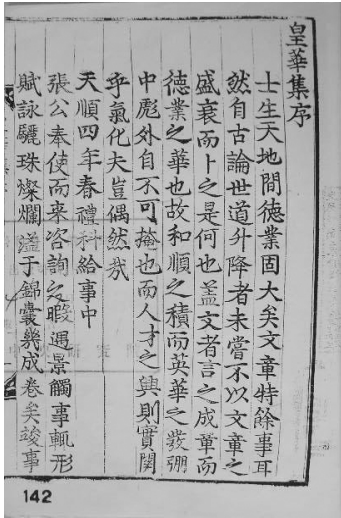 皇華集序
士生天地間德業固大矣文章特餘事耳
然自古論世道升降者未嘗不以文章之
盛衰而卜之是何也盖文者言之成章而
德業之華也故和順之積而英華之發弸
中彪外自不可掩也而人才之興則實関
乎氣化夫豈偶然㢤
天順四年春禮科給事中
張公奉使而来咨詢之暇遇景觸事輒形
賦詠驪珠燦爛溢于錦囊幾成卷矣竣事
142